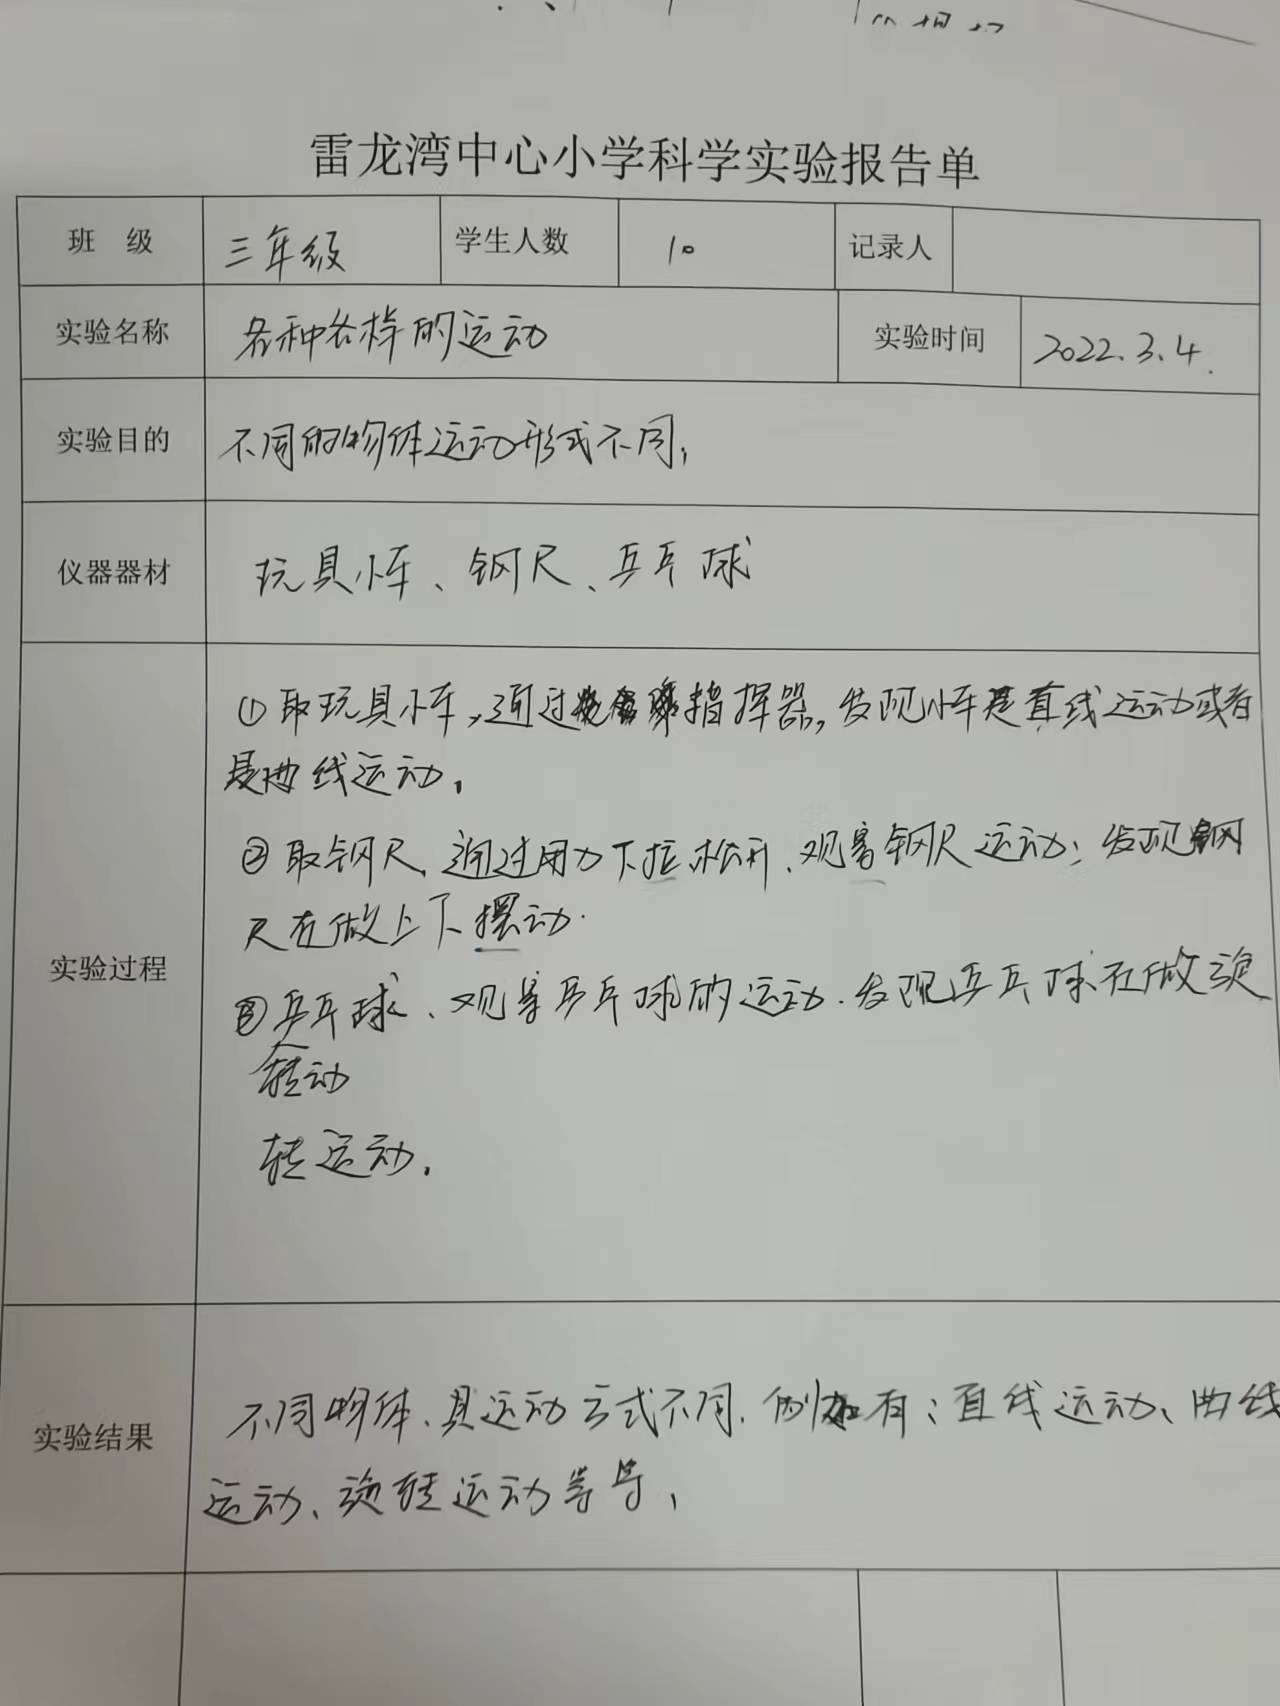 雷龙湾中心小学科学实验报告单
班 级 三年级 学生人数 10 记录人
实验名称 各种各样的运动 实验时间 2022.3.4.
实验目的 不同的物体运动形式不同,
仪器器材 玩具小车、钢尺、乒乓球
①取玩具小车,通过指挥器,发现小车是直线运动或者
是曲线运动。
②取钢尺,通过用力下拉松开、观察钢尺运动;发现钢
尺在做上下摆动.
实验过程
③乒乓球、观察乒乓球的运动.发现乒乓球在做旋
转动
转运动.
不同物体、其运动方式不同.例如有:直线运动、曲线
实验结果
运动、旋转运动等等,